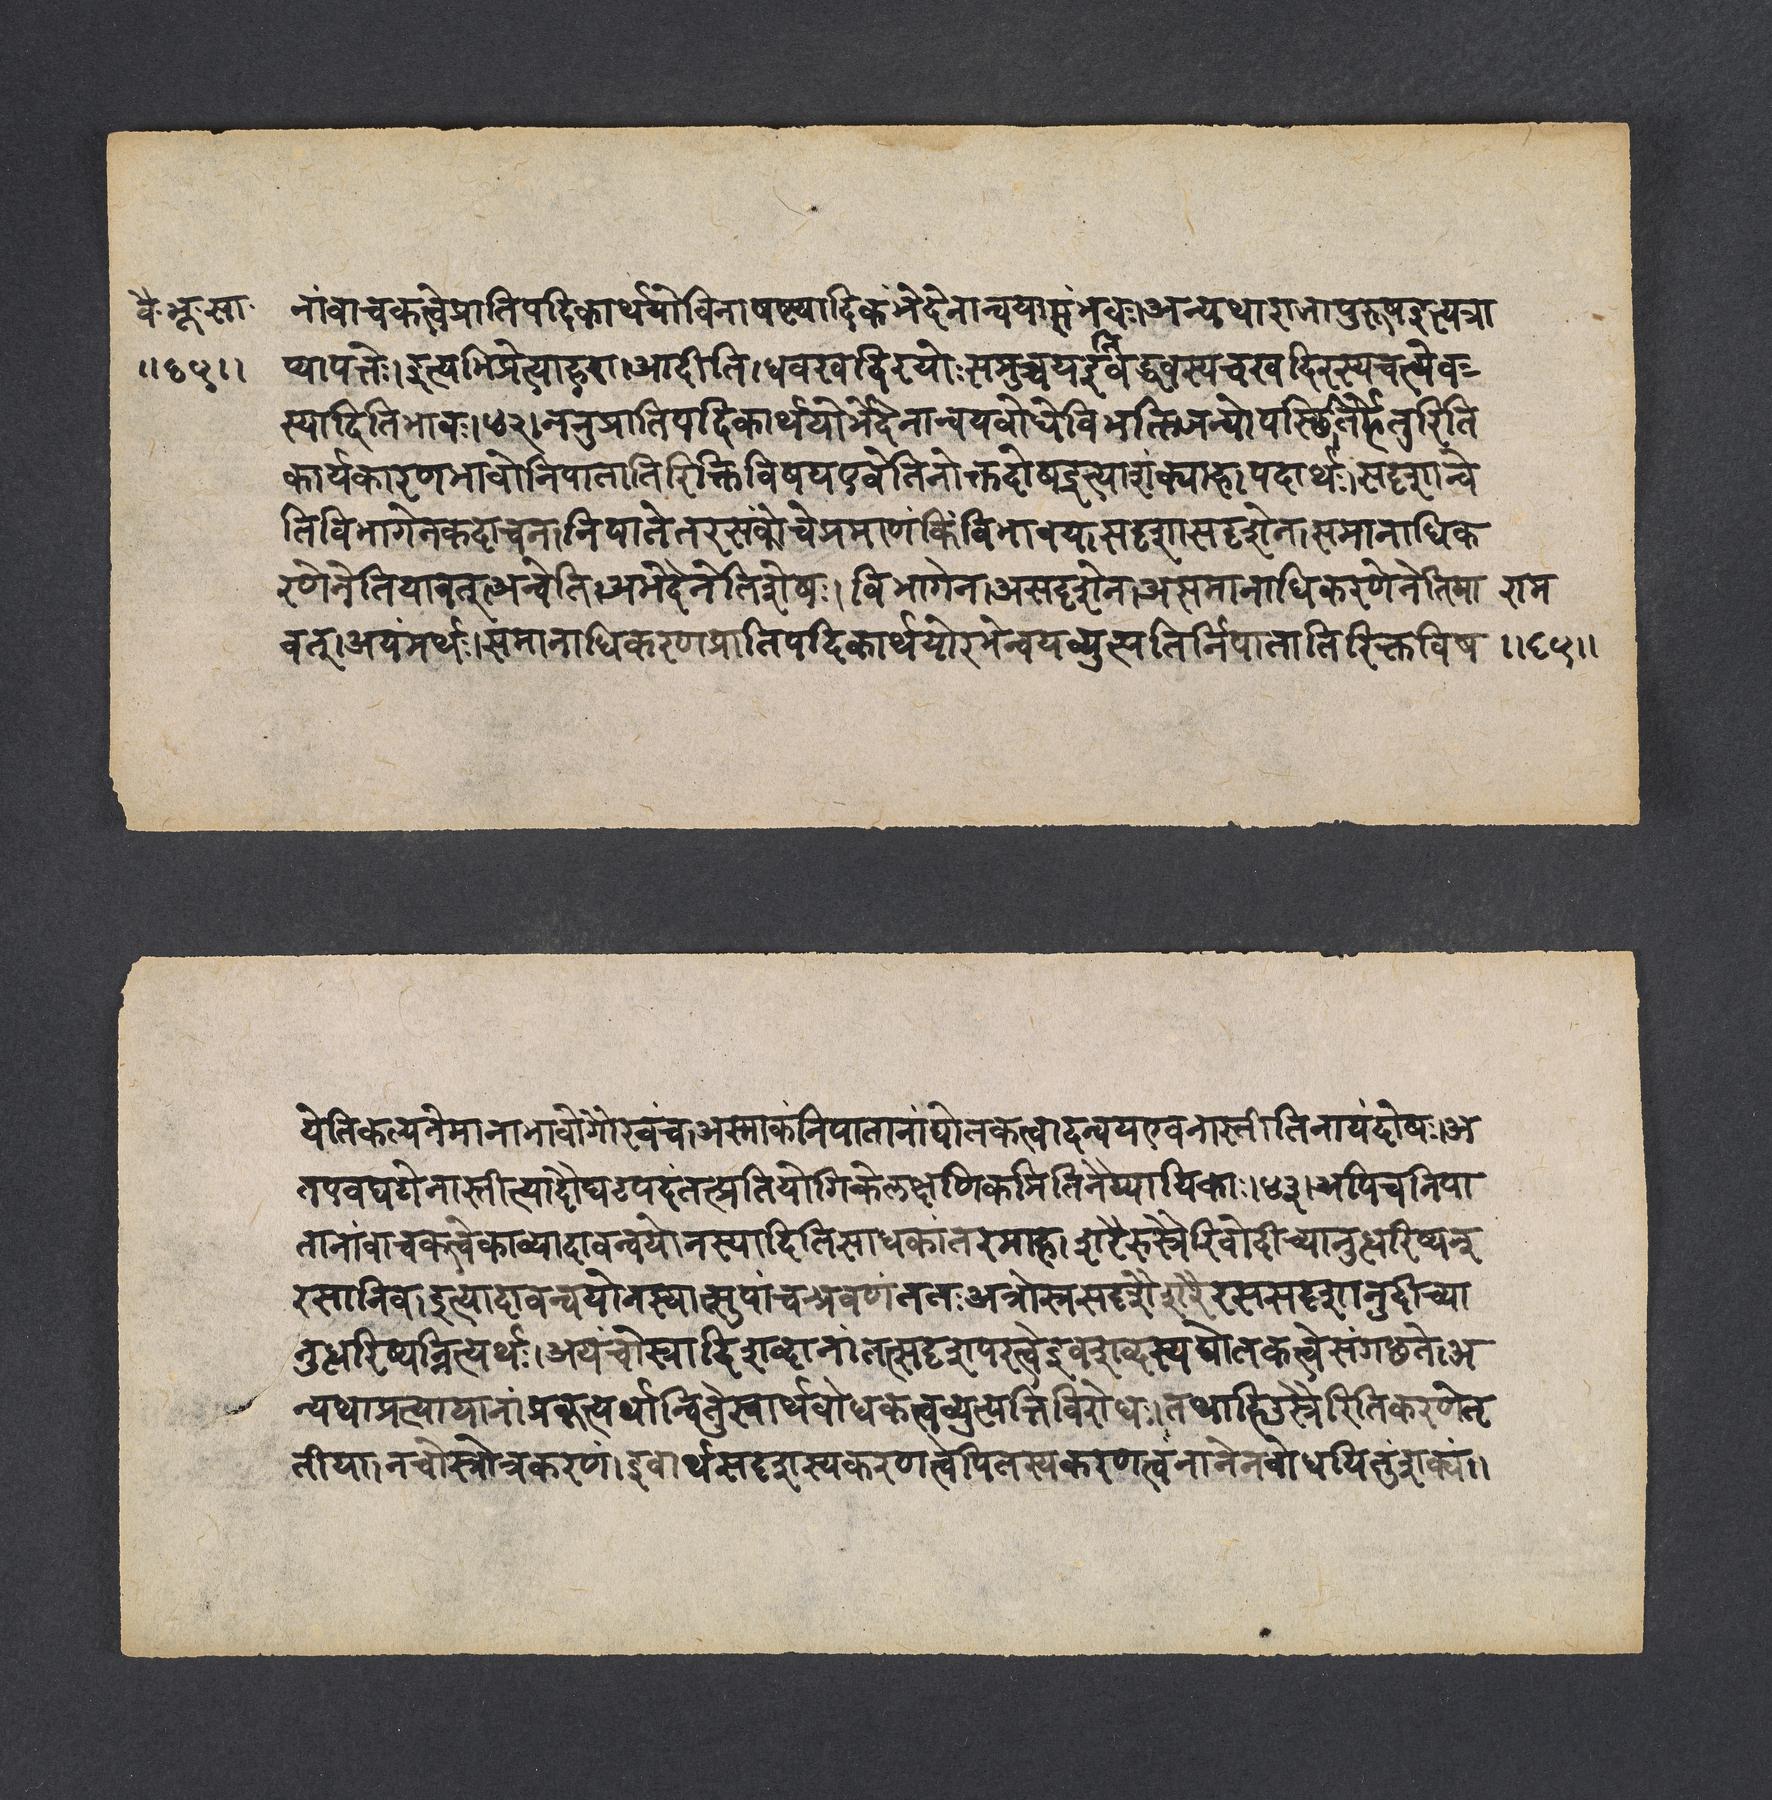 वै॰भू॰सा॰ नांवाचकत्वेप्रातिपदिकार्थयोविनाषष्ट्यादिकंभेदेनान्वयासंभवः।अन्यथाराजापुरुषइत्यत्रा
॥६५॥ प्यापत्तेः।इत्यभिप्रेत्याहशा।आदीति।धवखदिरयोःसमुच्चयइतिवद्धवस्यचखदिरस्यचत्येव
स्यादितिभावः।४२।ननुप्रातिपदिकार्थयोर्भेदेनान्वयबोधेविभक्तिजन्योपस्थितिर्हेतुरिति
कार्यकारणभावोनिपातातिरिक्तविषयएवेतिनोक्तदोषइत्याशंक्याह।पदार्थः।सदृशान्वे
तिविभागेनकदाचन।निपातेतरसंकोचेप्रमाणंकिंविभावय।सदृशासदृशेन।समानाधिक
रणेनेतियावत्।अन्वेति।अभेदेनेतिशेषः।विभागेन।असदृशेन।असमानाधिकरणेनेतिमा राम
वत्।अयंमर्थः।समानाधिकरणप्रातिपदिकार्थयोरभेन्वयव्युत्पतिर्निपातातिरिक्तविष ॥६५॥
येतिकल्पनेमानाभावोगौरवंच।अस्माकंनिपातानांद्योतकत्वादन्वयएवनास्तीतिनायंदोषः।अ
तएवघटोनास्तीत्यादौघटपदंतत्प्रतियोगिकेलक्षणिकमितिनैय्यायिकाः।४३।अपिचनिपा
तानांवाचकत्वेकाव्यादावन्वयोनस्यादितिसाधकांतरमाह।शरैरुस्त्रैरिवोदीच्यानुद्धरिष्यन्
रसानिव।इत्यादावन्वयोनस्यात्सुपांचश्रवणंततः।अत्रोस्त्रसदृशैःशरैरससदृशानुदीच्या
नुद्धरिष्यन्नित्यर्थः।अयंचोस्त्रादिशब्दानांतत्सदृशपरत्वेइवशब्दस्यद्योतकत्वेसंगछते।अ
न्यथाप्रत्यायानांप्रकृत्यर्थान्वितुस्वार्थबोधकत्वव्युत्पत्तिविरोधः।तथाहिउस्त्रैरितिकरणेतृ
तीया।नचोस्त्रोत्रकरणं।इवार्थसदृशस्यकरणत्वेपितस्यकरणत्वंनानेनबोधयितुंशक्यं॥